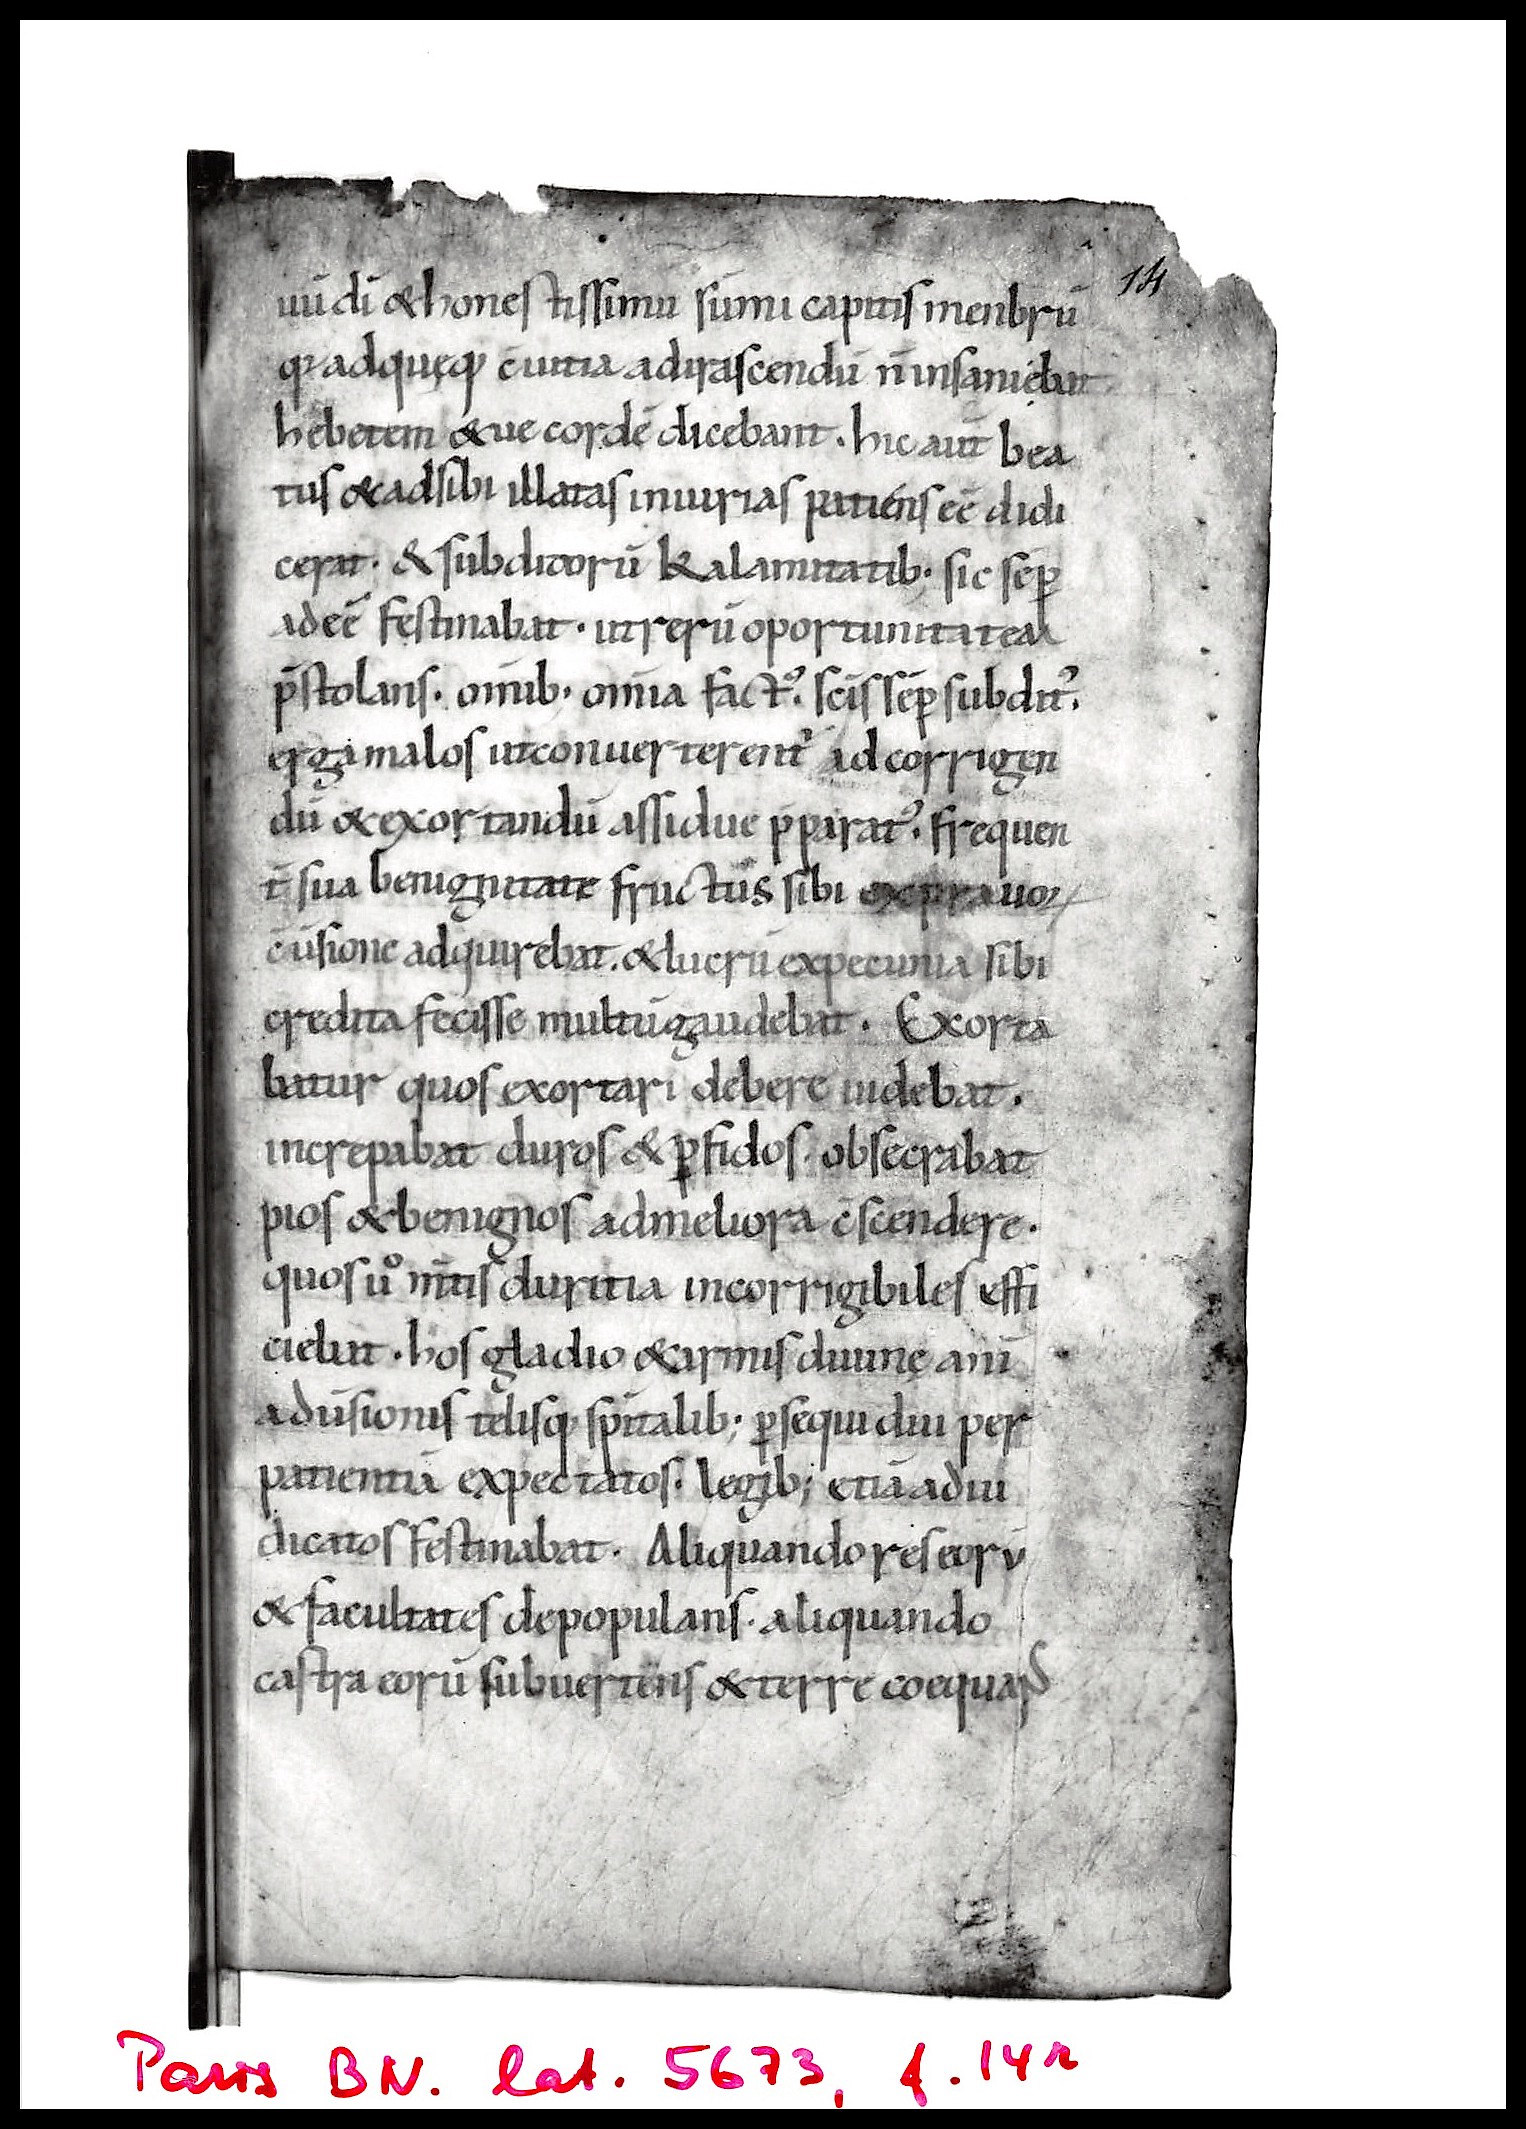 14
uiuū dī & honestissimū sūmi capitis menbrū
qꝛ adquęqꝫ c̄ uitia ad irascendū n̄ insaniebat
hebetem & ue cordē dicebant. hic aūt bea
tus & ad sibi illatas iniurias patiens eē didi
cerat. & subditorū kalamitatib; sic sēp
adeē festinabat. ut rerū oportunitatem
p̄stolans. om̄ib; om̄ia fact᾿. sc̄is sēp subdit᾿.
erga malos ut conuerterent᾿ ad corrigen
dū & exortandū assidue p̄parat᾿. frequen
t̄ sua benignitate fructus sibi ex prauoꝝ
c̄uersione adquirebat. & lucrū ex pecunia sibi
credita fecisse multū gaudebat. Exorta
batur quos exortari debere uidebat.
increpabat duros & ꝑfidos. obsecrabat
pios & benignos ad meliora c̄scendere.
quos ūo m̄tis duritia incorrigibiles effi
ciebat. hos gladio & armis diuinę ani
aduersionis telisqꝫ sp̄italib; ꝑsequi diu per
patientiā expectatos. legib; etiā adiu
dicatos festinabat. Aliquando res eorū
& facultates depopulans. aliquando
castra eorū subuertens & terre coequans
Paris BN. lat. 5673, f. 14r